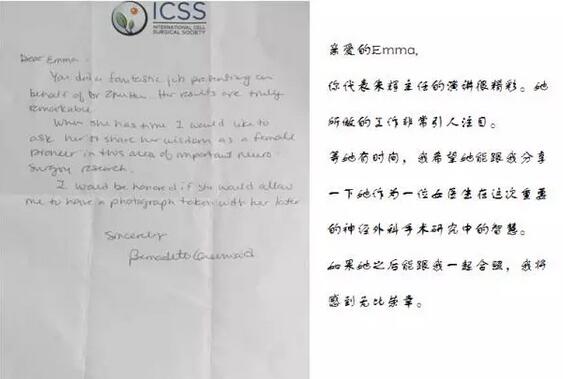 ICSS
INTERNATIONAL CELL
SURGICAL SOCIETY
Dear Emma,
You did a fantastic job presenting on
behalf of Dr Zhu Hui. Her results are truly
remarkable.
When she has time I would like to
ask her to share her wisdom as a female
pioneer in this area of important neuro-
surgery research.
I would be honored if she would allow
me to have a photograph taken with her later
Sincerely
亲爱的Emma,
你代表朱辉主任的演讲很精彩。她
所做的工作非常引人注目。
等她有时间，我希望她能跟我分享
一下她作为一位女医生在这次重要
的神经外科手术研究中的智慧。
如果她之后能跟我一起合照，我将
感到无比荣幸。